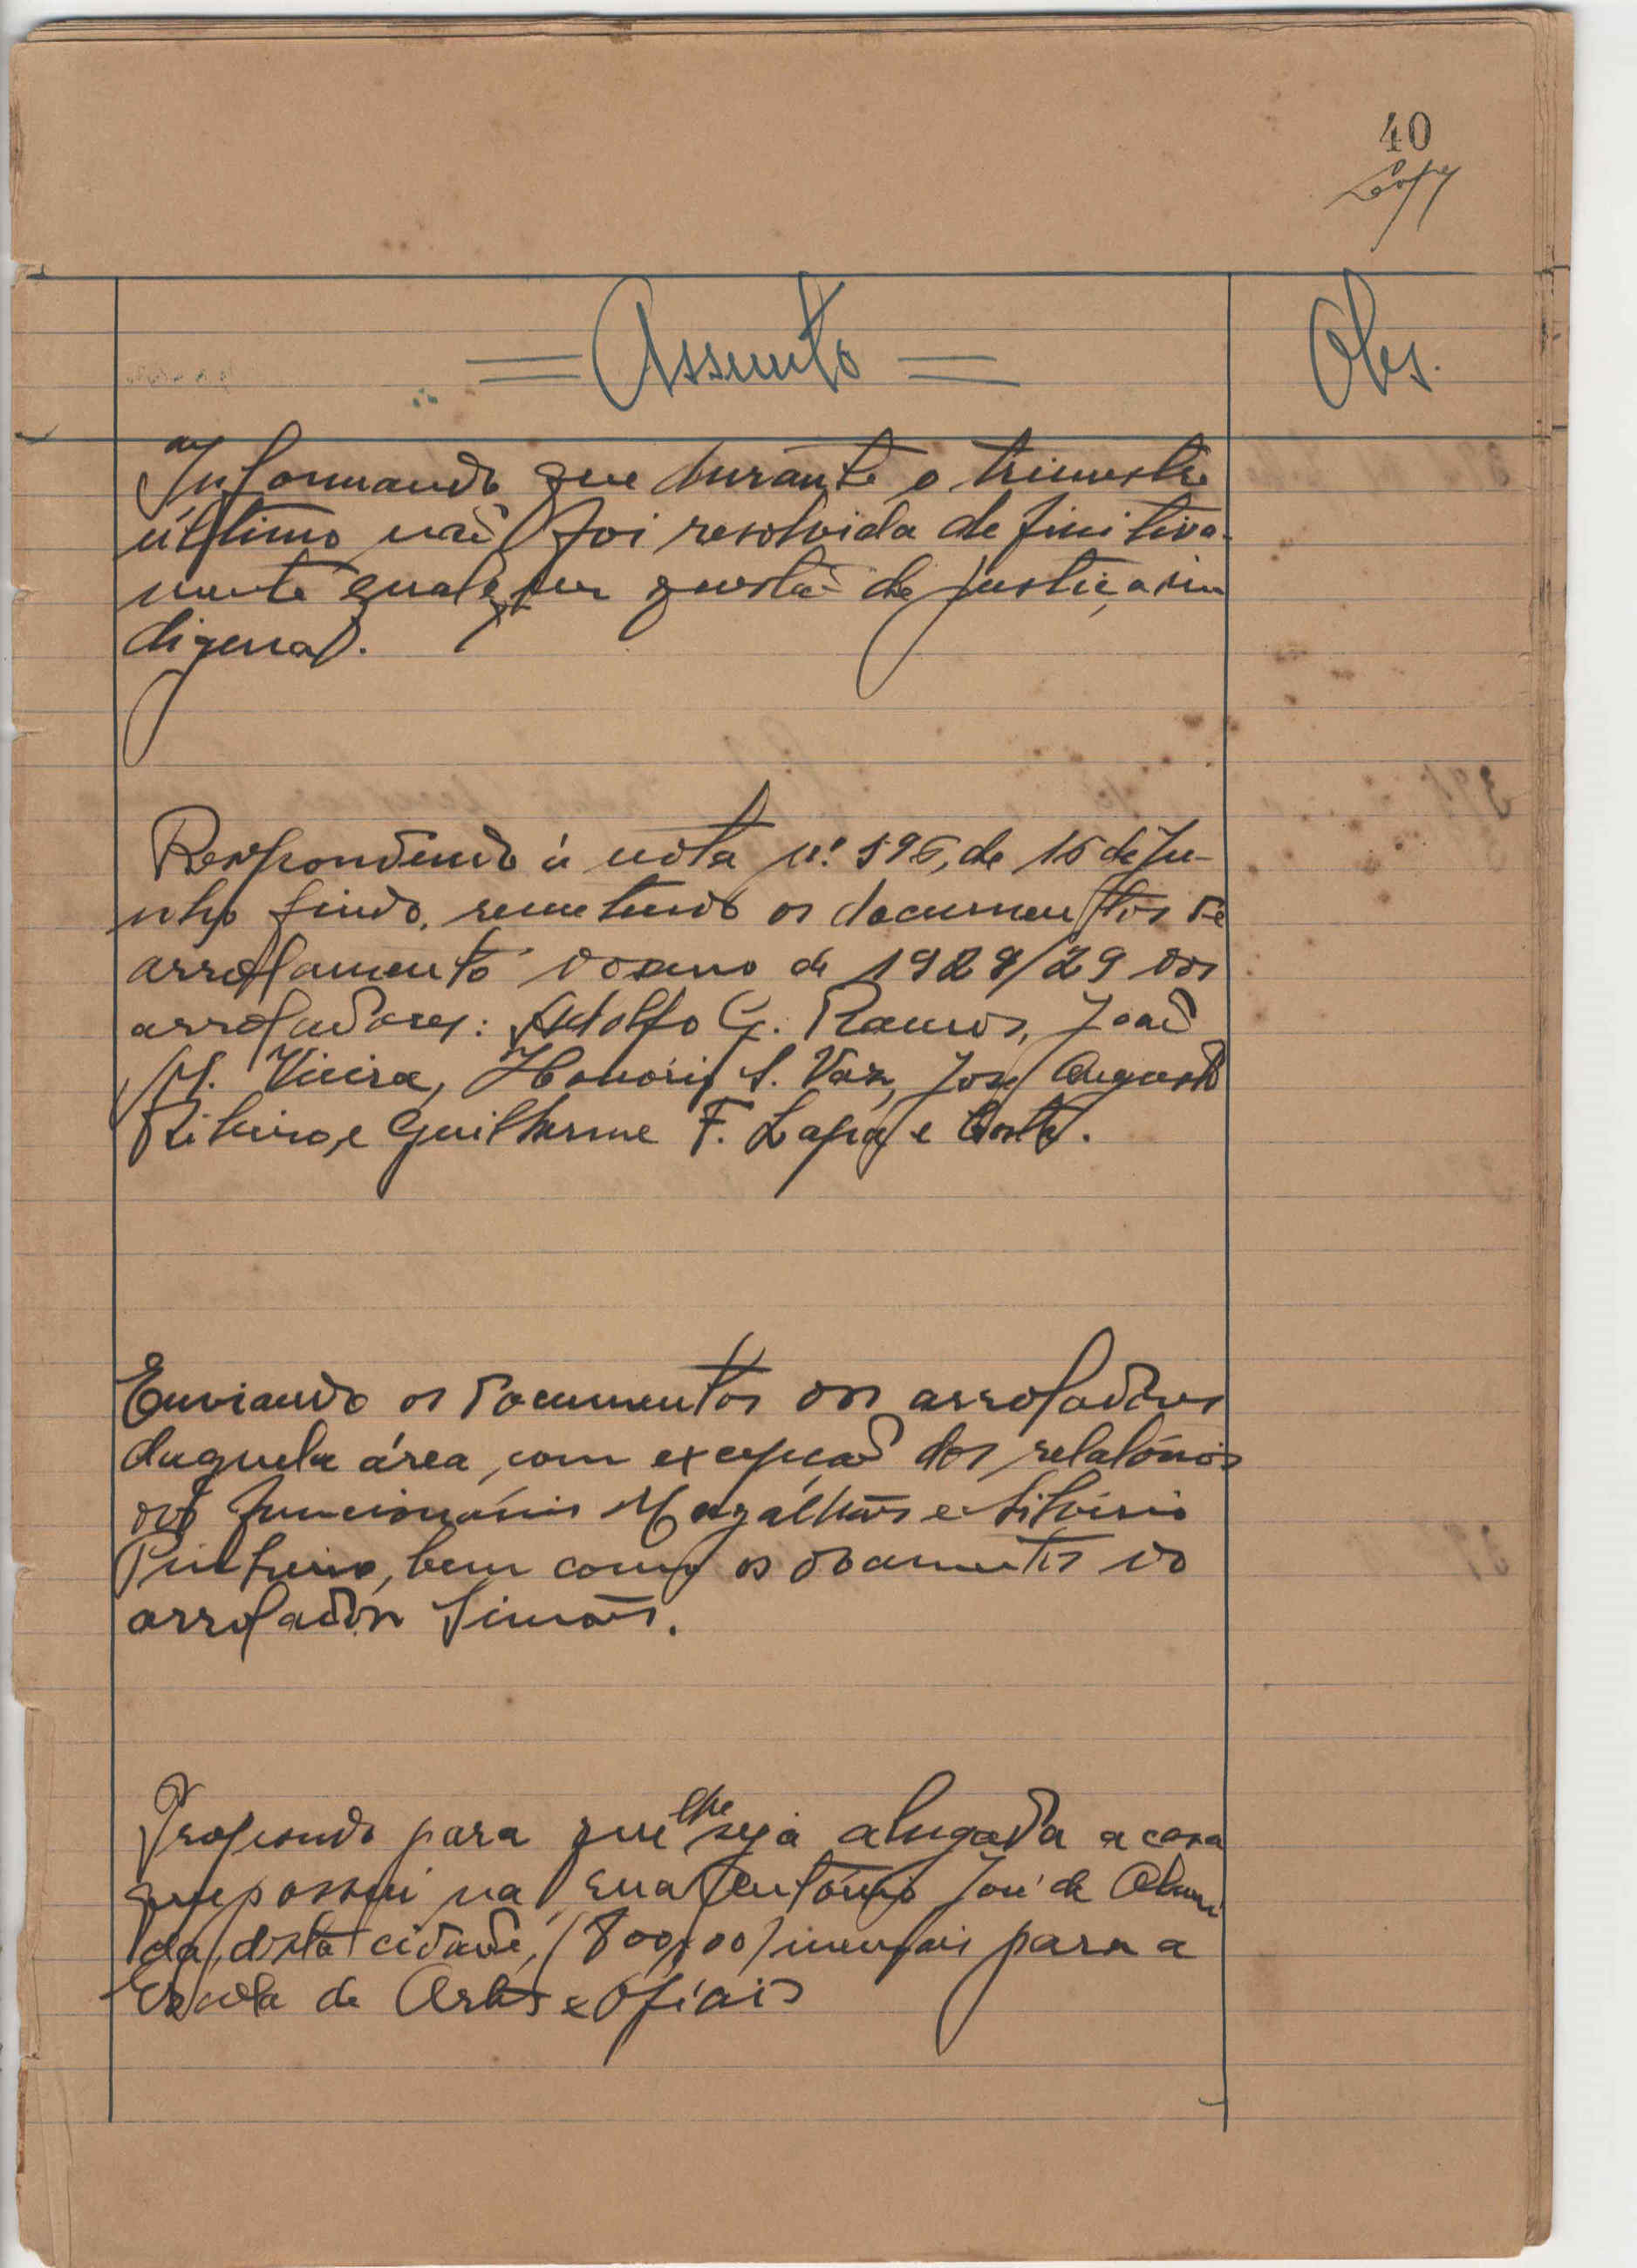 40
= Assunto =
Obs.
Informando que durante o trimestre
último não foi resolvida definitiva-
mente qualquer questão de justiça in
digena.
Respondendo à nota n.º 596, de 15 de Ju-
nho findo, remetendo os documentos de
arrolamento do ano de 1928/29 dos
arroladores: Adolfo G. Ramos, João
M. Vieira, Honório S. Vaz, José Augusto
Ribeiro, e Guilherme F. Lapa e Costa.
Enviando os documentos dos arroladores
daquela área, com excepção dos relatórios
dos funcionários Magalhães e Silvério
Pinheiro, bem como os documentos do
arrolador Simões.
Propondo para que lhe seja alugada a casa
que possui na rua António José de Almei
da, desta cidade, (800,00) mensais para a
Escola de Artes e Ofíciais